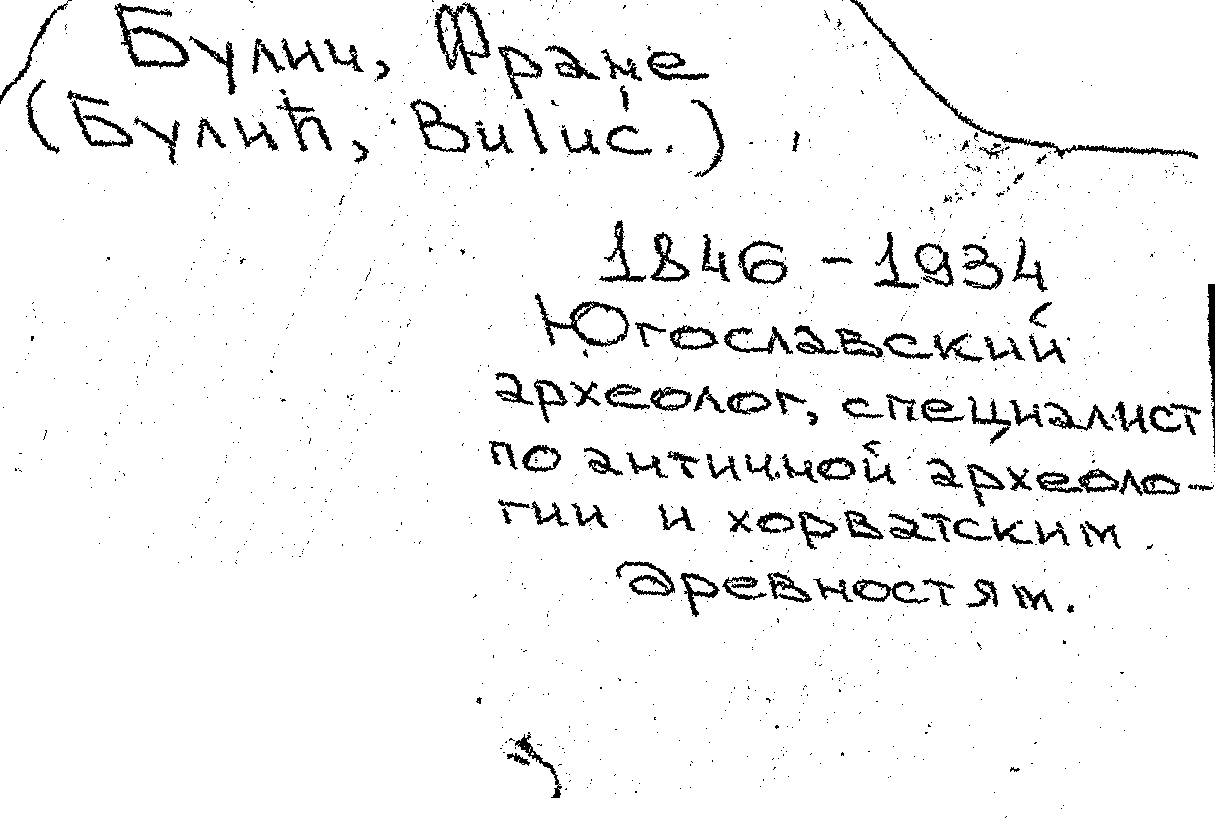 Булич, Фране
(Булић, Bulić.)
1846 - 1934
Югославский
археолог, специалист
по античной археоло-
гии и хорватским
древностям.